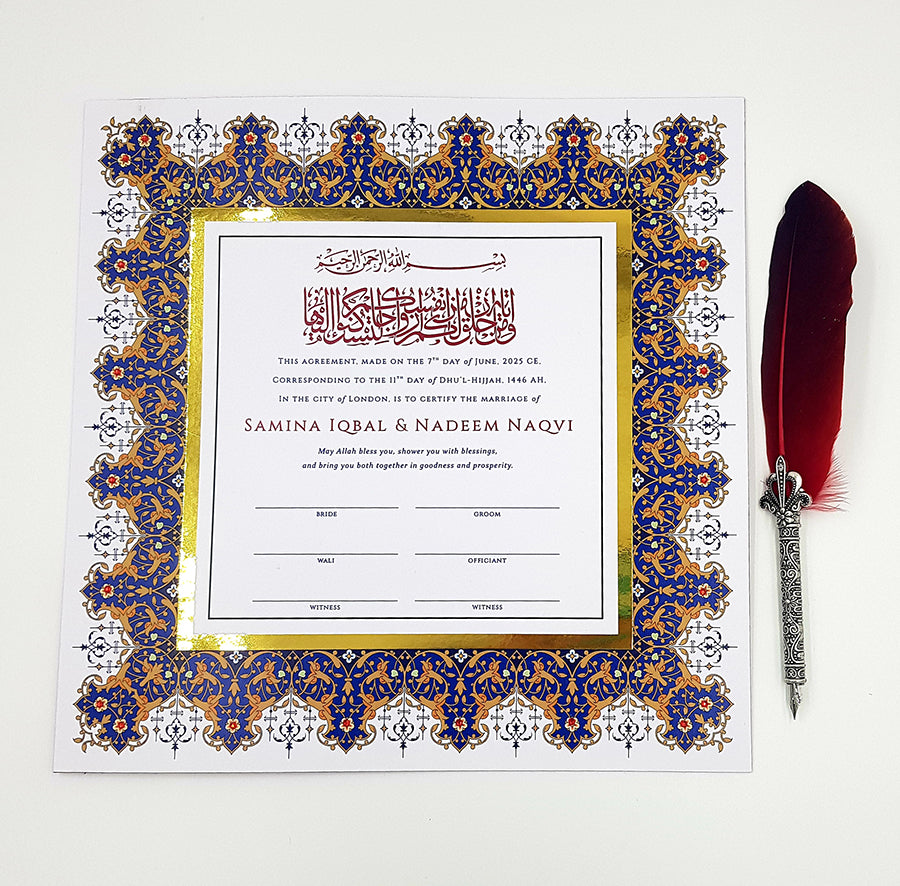 بسم الله الرحمن الرحيم
ومن آياته أن خلق لكم من أنفسكم أزواجا لتسكنوا إليها
This agreement, made on the 7th day of June, 2025 CE,
Corresponding to the 11th day of Dhu'l-Hijjah, 1446 AH,
In the city of London, is to certify the marriage of
Samina Iqbal & Nadeem Naqvi
May Allah bless you, shower you with blessings,
and bring you both together in goodness and prosperity.
BRIDE GROOM
WALI OFFICIANT
WITNESS WITNESS